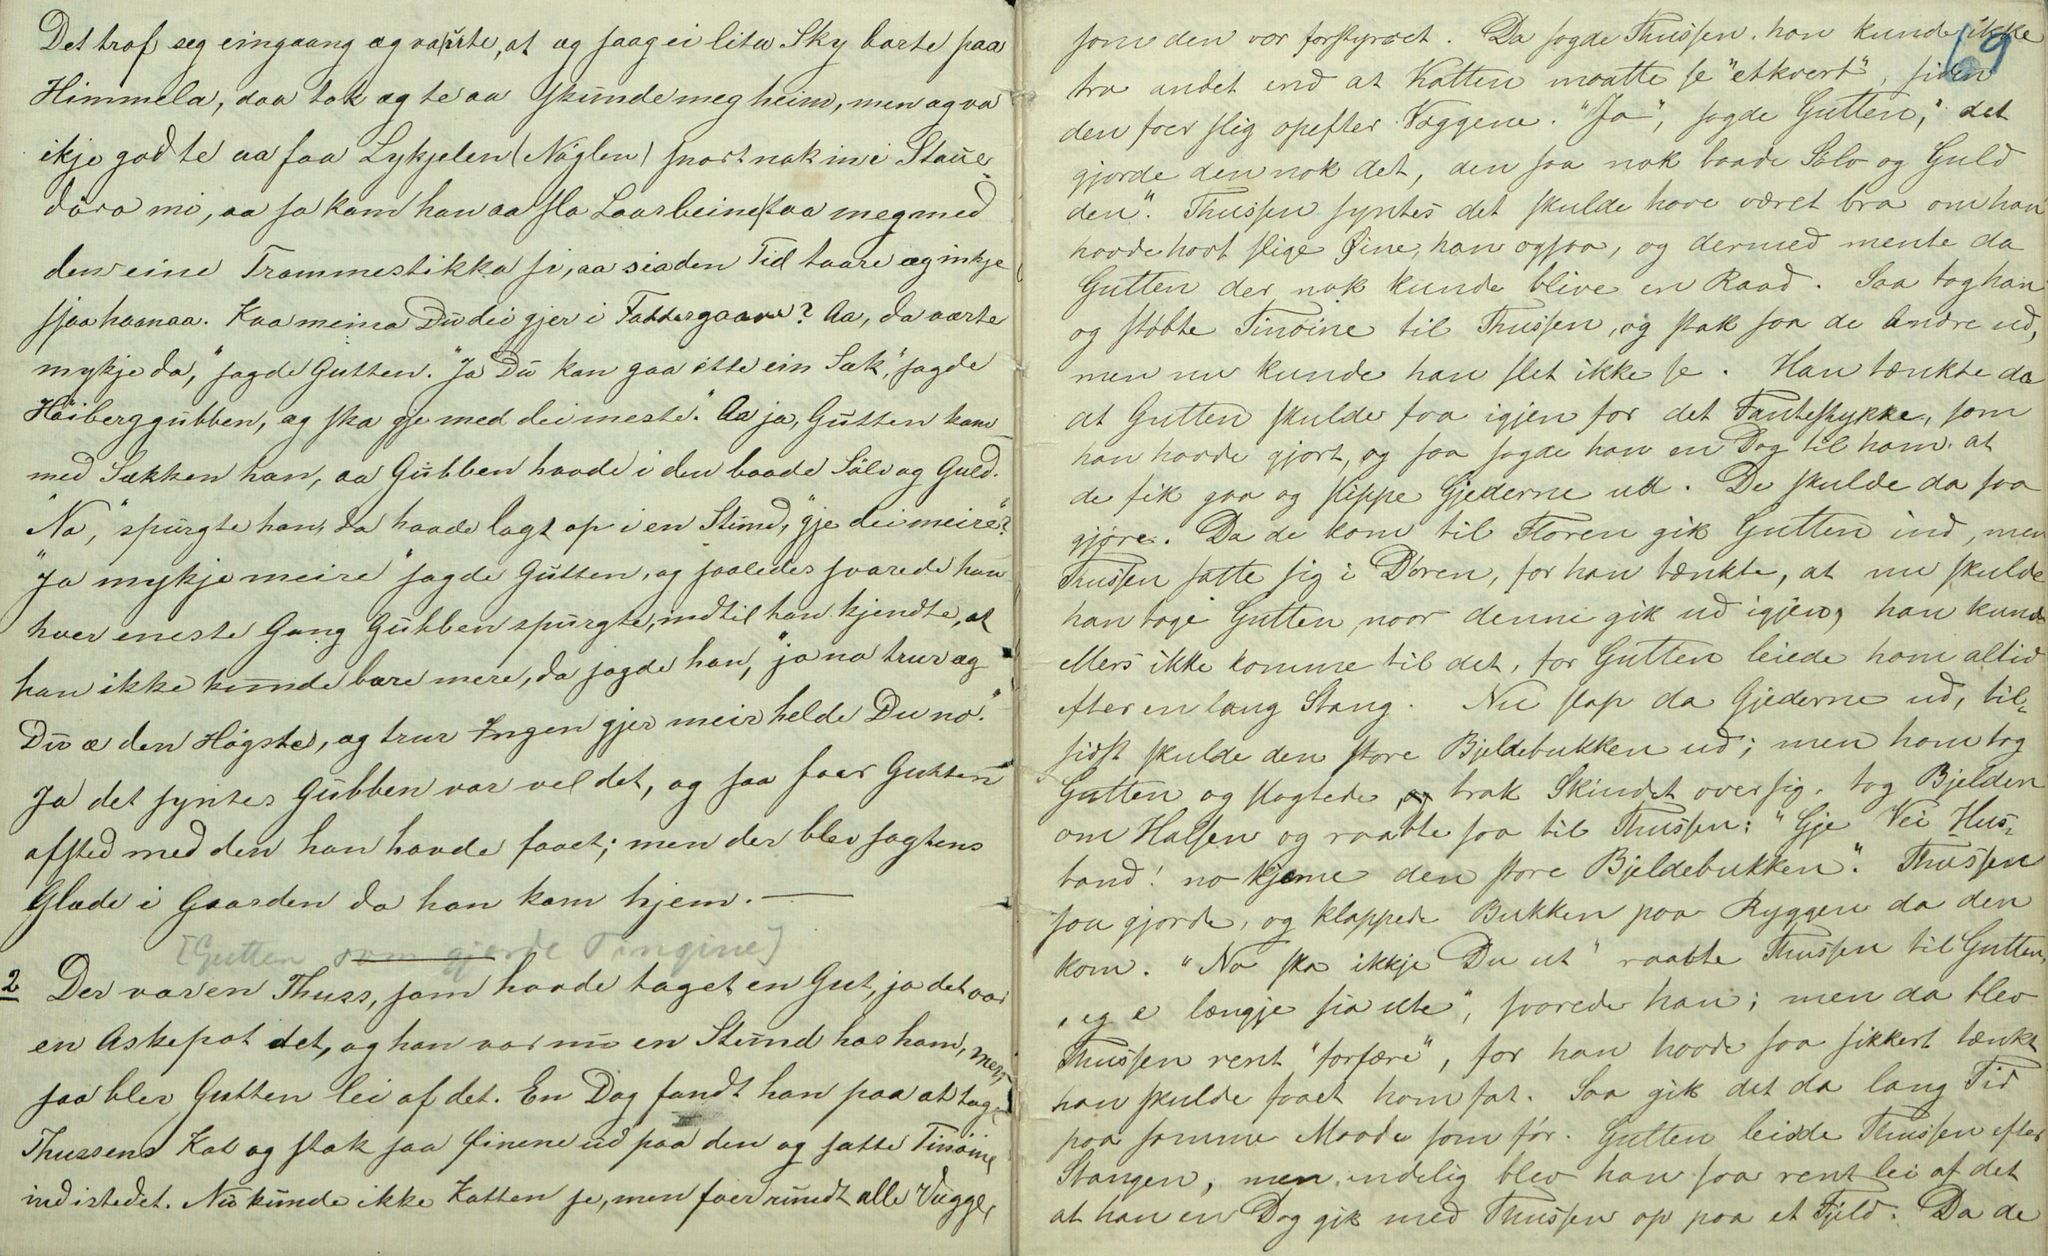 Det traf seg eingaang æg va ute, at æg saag ei lita Sky borte paa
Himmela, daa tok æg te aa skunde meg heim, men æg va
ikje god te aa faa Lykjelen (Nøglen) snort nok in i Staue-
døra mi, aa so kom han aa slo Laarbeine taa meg med
den eine Trommestikka si, aa sia den Tid taare æg inkje
sjaa honaa. Kaa meina Du dei gjer i Faddergaave? Aa, da værte
mykje da," sagde Gutten. "Ja Du kan gaa ette ein Sæk," sagde
Høiberggubben, æg ska gje med dei meste." Aa ja, Gutten kom
med Sækken han, aa Gubben havde i den baade Sølv og Guld.
"No," spurgte han, da havde lagt op i en Stund, "gje dei meire"?
"Ja mykje meire" sagde Gutten, og saaledes svarede han
hver eneste Gang Gubben spurgte, indtil han kjendte, at
han ikke kunde bære mere, da sagde han, "ja no trur æg
Du æ den Høgste, æg trur Ingen gjer meir helde Du no."
Ja det syntes Gubben var vel det, og saa foer Gutten
afsted med den han havde faaet; men der blev sagtens
Glæde i Gaarden da han kom hjem. —
[Gutten som gjorde Tingine]
2 Der var en Thuss, som havde taget en Gut, ja det var
en Askepot det, og han var nu en Stund hos ham, men
saa blev Gutten lei af det. En Dag fandt han paa at tage
Thussens Kat og stak saa Øinene ud paa den og satte Tinøine
ind istedet. Nu kunde ikke Katten se, men foer rundt alle Vægger,
19
som den var forstyrret. Da sagde Thussen, han kunde ikke
tro andet end at Katten maatte se "etkvert", siden
den foer slig opefter Væggene. "Ja", sagde Gutten, "det
gjorde den nok det, den saa nok baade Sølv og Guld
den". Thussen syntes det skulde have været bra om han
havde havt slige Øine, han ogsaa, og dermed mente da
Gutten der nok kunde blive en Raad. Saa tog han
og støbte Tinøine til Thussen, og stak saa de andre ud,
men nu kunde han slet ikke se. Han tænkte da
at Gutten skulde faa igjen for det Fantestykke, som
han havde gjort, og saa sagde han en Dag til ham at
de fik gaa og slippe Gjederne ud. De skulde da saa
gjøre. Da de kom til Floren gik Gutten ind, men
Thussen satte sig i Døren, for han tænkte, at nu skulde
han tage Gutten, naar denne gik ud igjen, han kunde
ellers ikke komme til det, for Gutten leiede ham altid
efter en lang Stang. Nu slap da Gjederne ud, til-
sidst skulde den store Bjeldebukken ud; men ham tog
Gutten og slagtede, og trak Skindet over sig, tog Bjelden
om Halsen og raabte saa til Thussen: "Gje Vei Hus-
bond! no kjeme den store Bjeldebukken". Thussen
saa gjorde, og klappede Bukken paa Ryggen da den
kom. "No ska ikkje Du ut" raabte Thussen til Gutten,
"eg e længje sia ute", svarede han; men da blev
Thussen rent "forfære", for han havde saa sikkert tænkt
han skulde faaet ham fat. Saa gik det da lang Tid
paa samme Maade som før. Gutten leiede Thussen efter
Stangen, men endelig blev han saa rent lei af det
at han en Dag gik med Thussen op paa et Fjeld. Da de